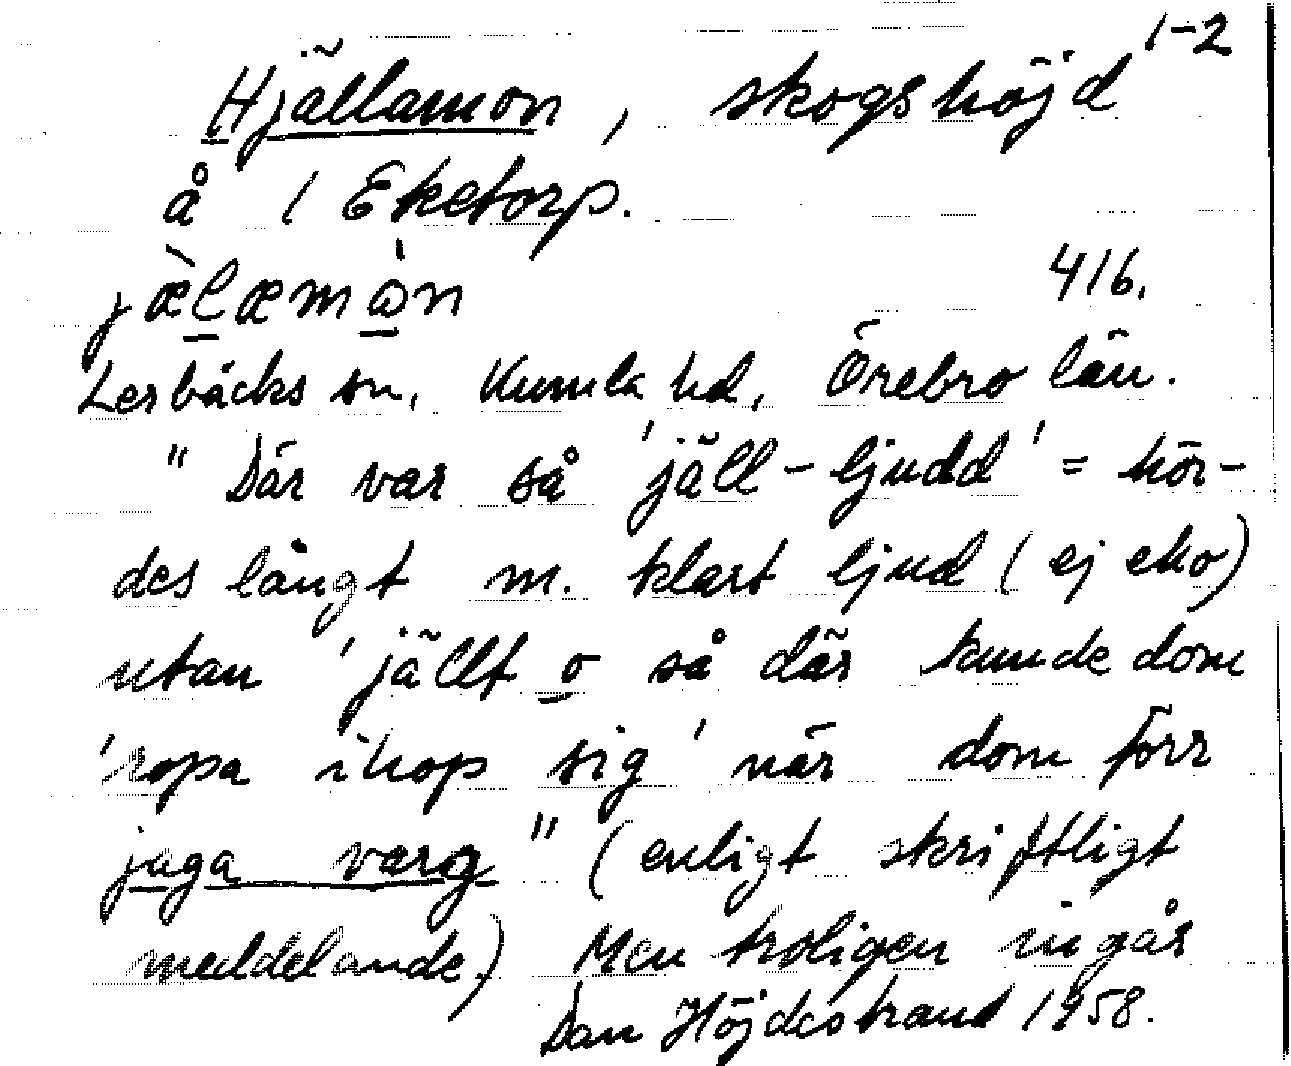 1-2
Hjällamon, skogshöjd
å 1 Eketorp.
jæ̀læmòn 416.
Lerbäcks sn, Kumla hd, Örebro län.
" Där var så 'jäll-ljudd' = hör-
des långt m. klart ljud (ej eko)
utan 'jällt o så där kunde dom
'ropa ihop sig' när dom förr
jaga varg" (enligt skriftligt
meddelande.) Men troligen ingår
Dan Höjdestrand 1958.